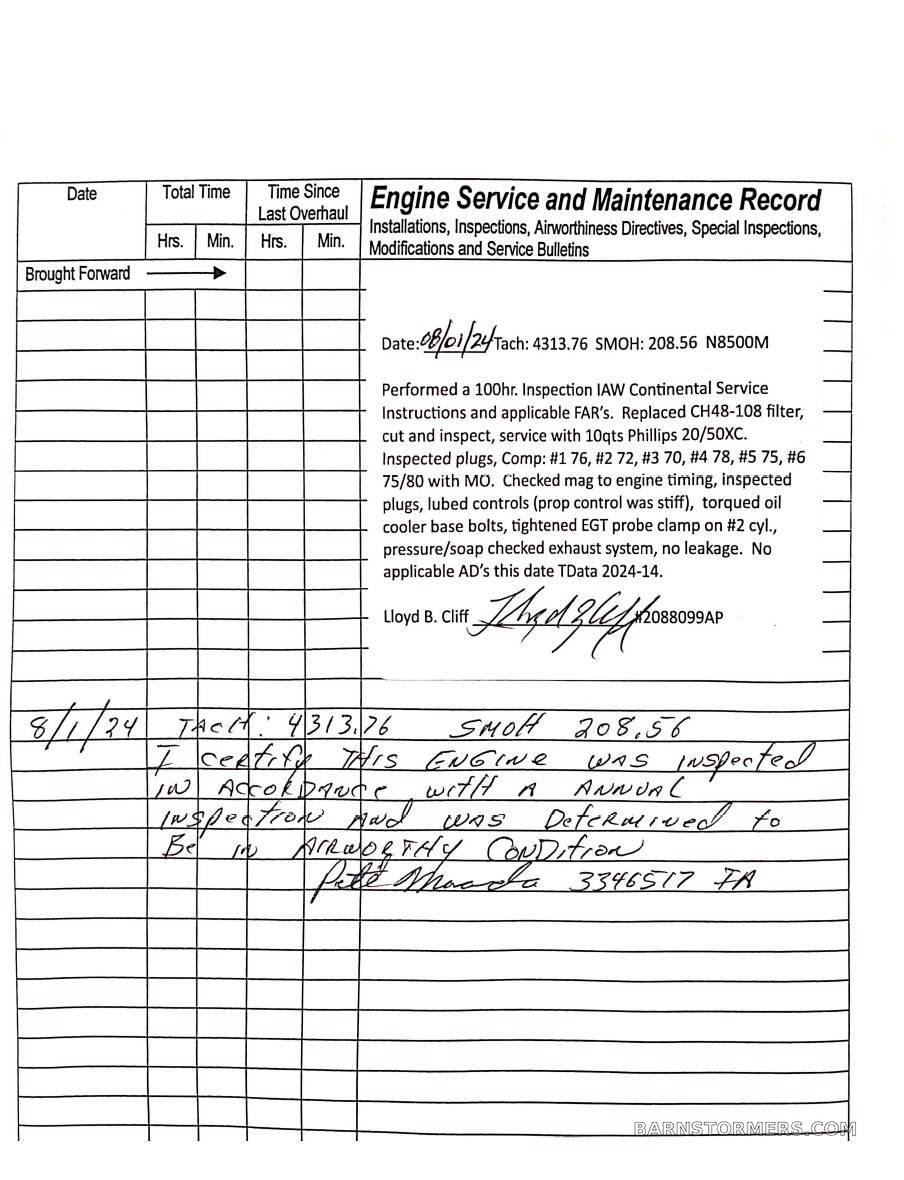 Date
Total Time
Time Since
Last Overhaul
Engine Service and Maintenance Record
Installations, Inspections, Airworthiness Directives, Special Inspections,
Modifications and Service Bulletins
Hrs. Min. Hrs. Min.
Brought Forward
Date: 08/01/24 Tach: 4313.76 SMOH: 208.56 N8500M
Performed a 100hr. Inspection IAW Continental Service
Instructions and applicable FAR's. Replaced CH48-108 filter,
cut and inspect, service with 10qts Phillips 20/50XC.
Inspected plugs, Comp: #1 76, #2 72, #3 70, #4 78, #5 75, #6
75/80 with MO. Checked mag to engine timing, inspected
plugs, lubed controls (prop control was stiff), torqued oil
cooler base bolts, tightened EGT probe clamp on #2 cyl.,
pressure/soap checked exhaust system, no leakage. No
applicable AD's this date TData 2024-14.
Lloyd B. Cliff #2088099AP
8/1/24 TACH: 4313.76 SMOH 208.56
I certify THIS ENGINE WAS INSpected
IN ACCORDANCE with A ANNUAL
INSpection AND WAS DeterMINed to
Be IN AIRWORTHY CONDItion
Pete 3346517 IA
BARNSTORMERS.COM